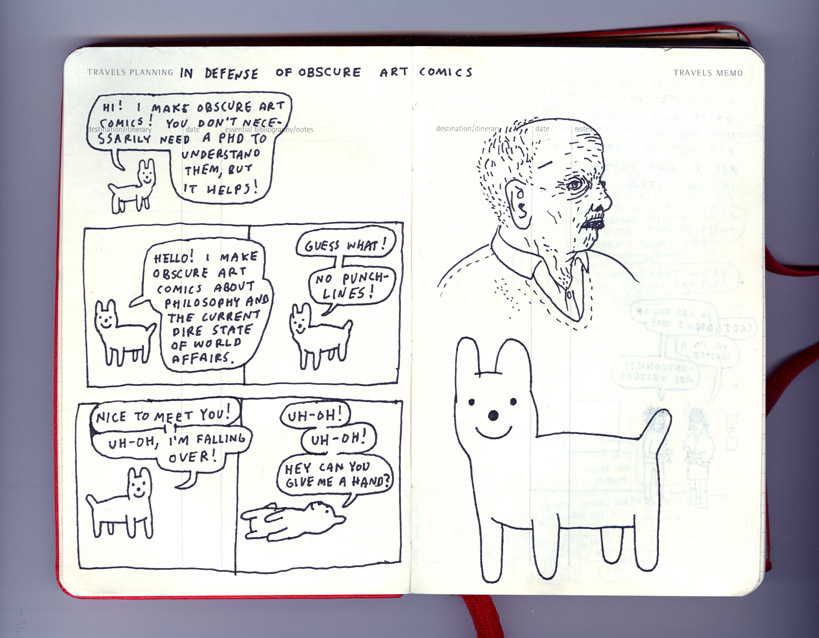 TRAVELS PLANNING IN DEFENSE OF OBSCURE ART COMICS
TRAVELS MEMO
destination/itinerary date essential bibliography/notes
HI! I MAKE OBSCURE ART
COMICS! YOU DON'T NECE-
SSARILY NEED A PHD TO
UNDERSTAND
THEM, BUT
IT HELPS!
HELLO! I MAKE
OBSCURE ART
COMICS ABOUT
PHILOSOPHY AND
THE CURRENT
DIRE STATE
OF WORLD
AFFAIRS.
GUESS WHAT!
NO PUNCH-
LINES!
NICE TO MEET YOU!
UH-OH, I'M FALLING
OVER!
UH-OH!
UH-OH!
HEY CAN YOU
GIVE ME A HAND?
destination/itinerary date notes